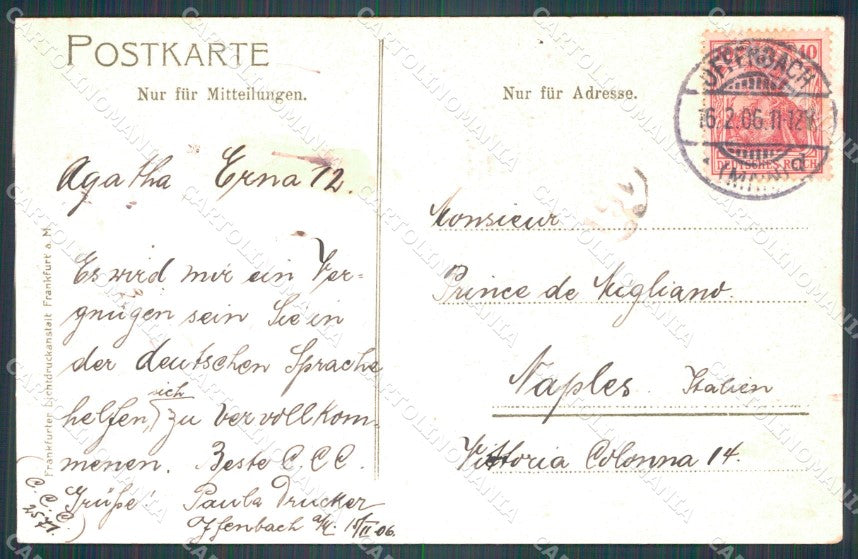 POSTKARTE
Nur für Mitteilungen.
Agatha Erna 12.
Es wird mir ein Ver-
gnügen sein Sie in
der deutschen Sprache
helfen, sich zu vervollkom-
menen. Beste C.C.C.
Grüße! Paula Drucker
Offenbach a/M. 15/II 06.
(C.C.C.
2571.)
Frankfurter Lichtdruckanstalt Frankfurt a. M.
Nur für Adresse.
10
DEUTSCHES REICH
OFFENBACH
16.2.06.11-12V.
(MAIN) d
Monsieur
Prince de Migliano.
Naples. Italien
Vittoria Colonna 14.
CARTOLINOMANIA